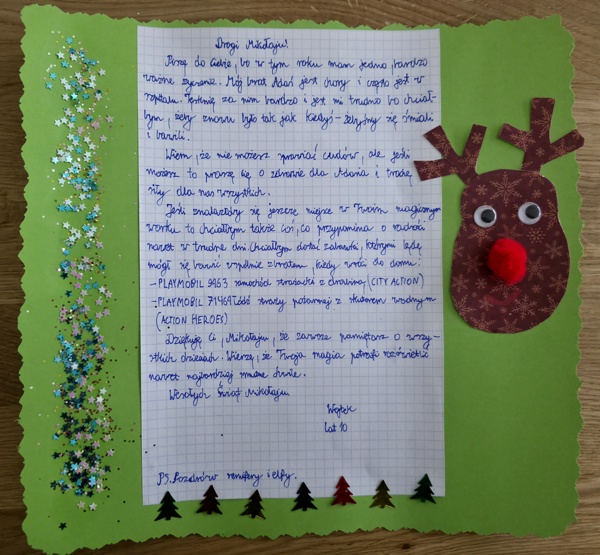 Drogi Mikołaju!
Piszę do Ciebie, bo w tym roku mam jedno, bardzo
ważne życzenie. Mój brat Adaś jest chory i często jest w
szpitalu. Tęsknię za nim bardzo i jest mi trudno bo chciał-
bym, żeby znowu było tak jak kiedyś - żebyśmy się śmiali
i bawili.
Wiem, że nie możesz sprawiać cudów, ale jeśli
możesz to proszę Cię o zdrowie dla Adasia i trochę
siły dla nas wszystkich.
Jeśli znalazłoby się jeszcze miejsce w Twoim magicznym
worku to chciałbym także coś, co przypomina o radości
nawet w trudne dni. Chciałbym dostać zabawki, którymi będę
mógł się bawić wspólnie z bratem, kiedy wróci do domu.
- PLAYMOBIL 9463 samochód strażacki z drabiną (CITY ACTION)
- PLAYMOBIL 71464 łódź straży pożarnej z skuterem wodnym
(ACTION HEROES)
Dziękuję Ci, Mikołaju, że zawsze pamiętasz o wszy-
stkich dzieciach. Wierzę, że Twoja magia potrafi rozświetlić
nawet najbardziej smutne chwile.
Wesołych Świąt Mikołaju.
Wojtek
Lat 10
PS. Pozdrów renifery i elfy.